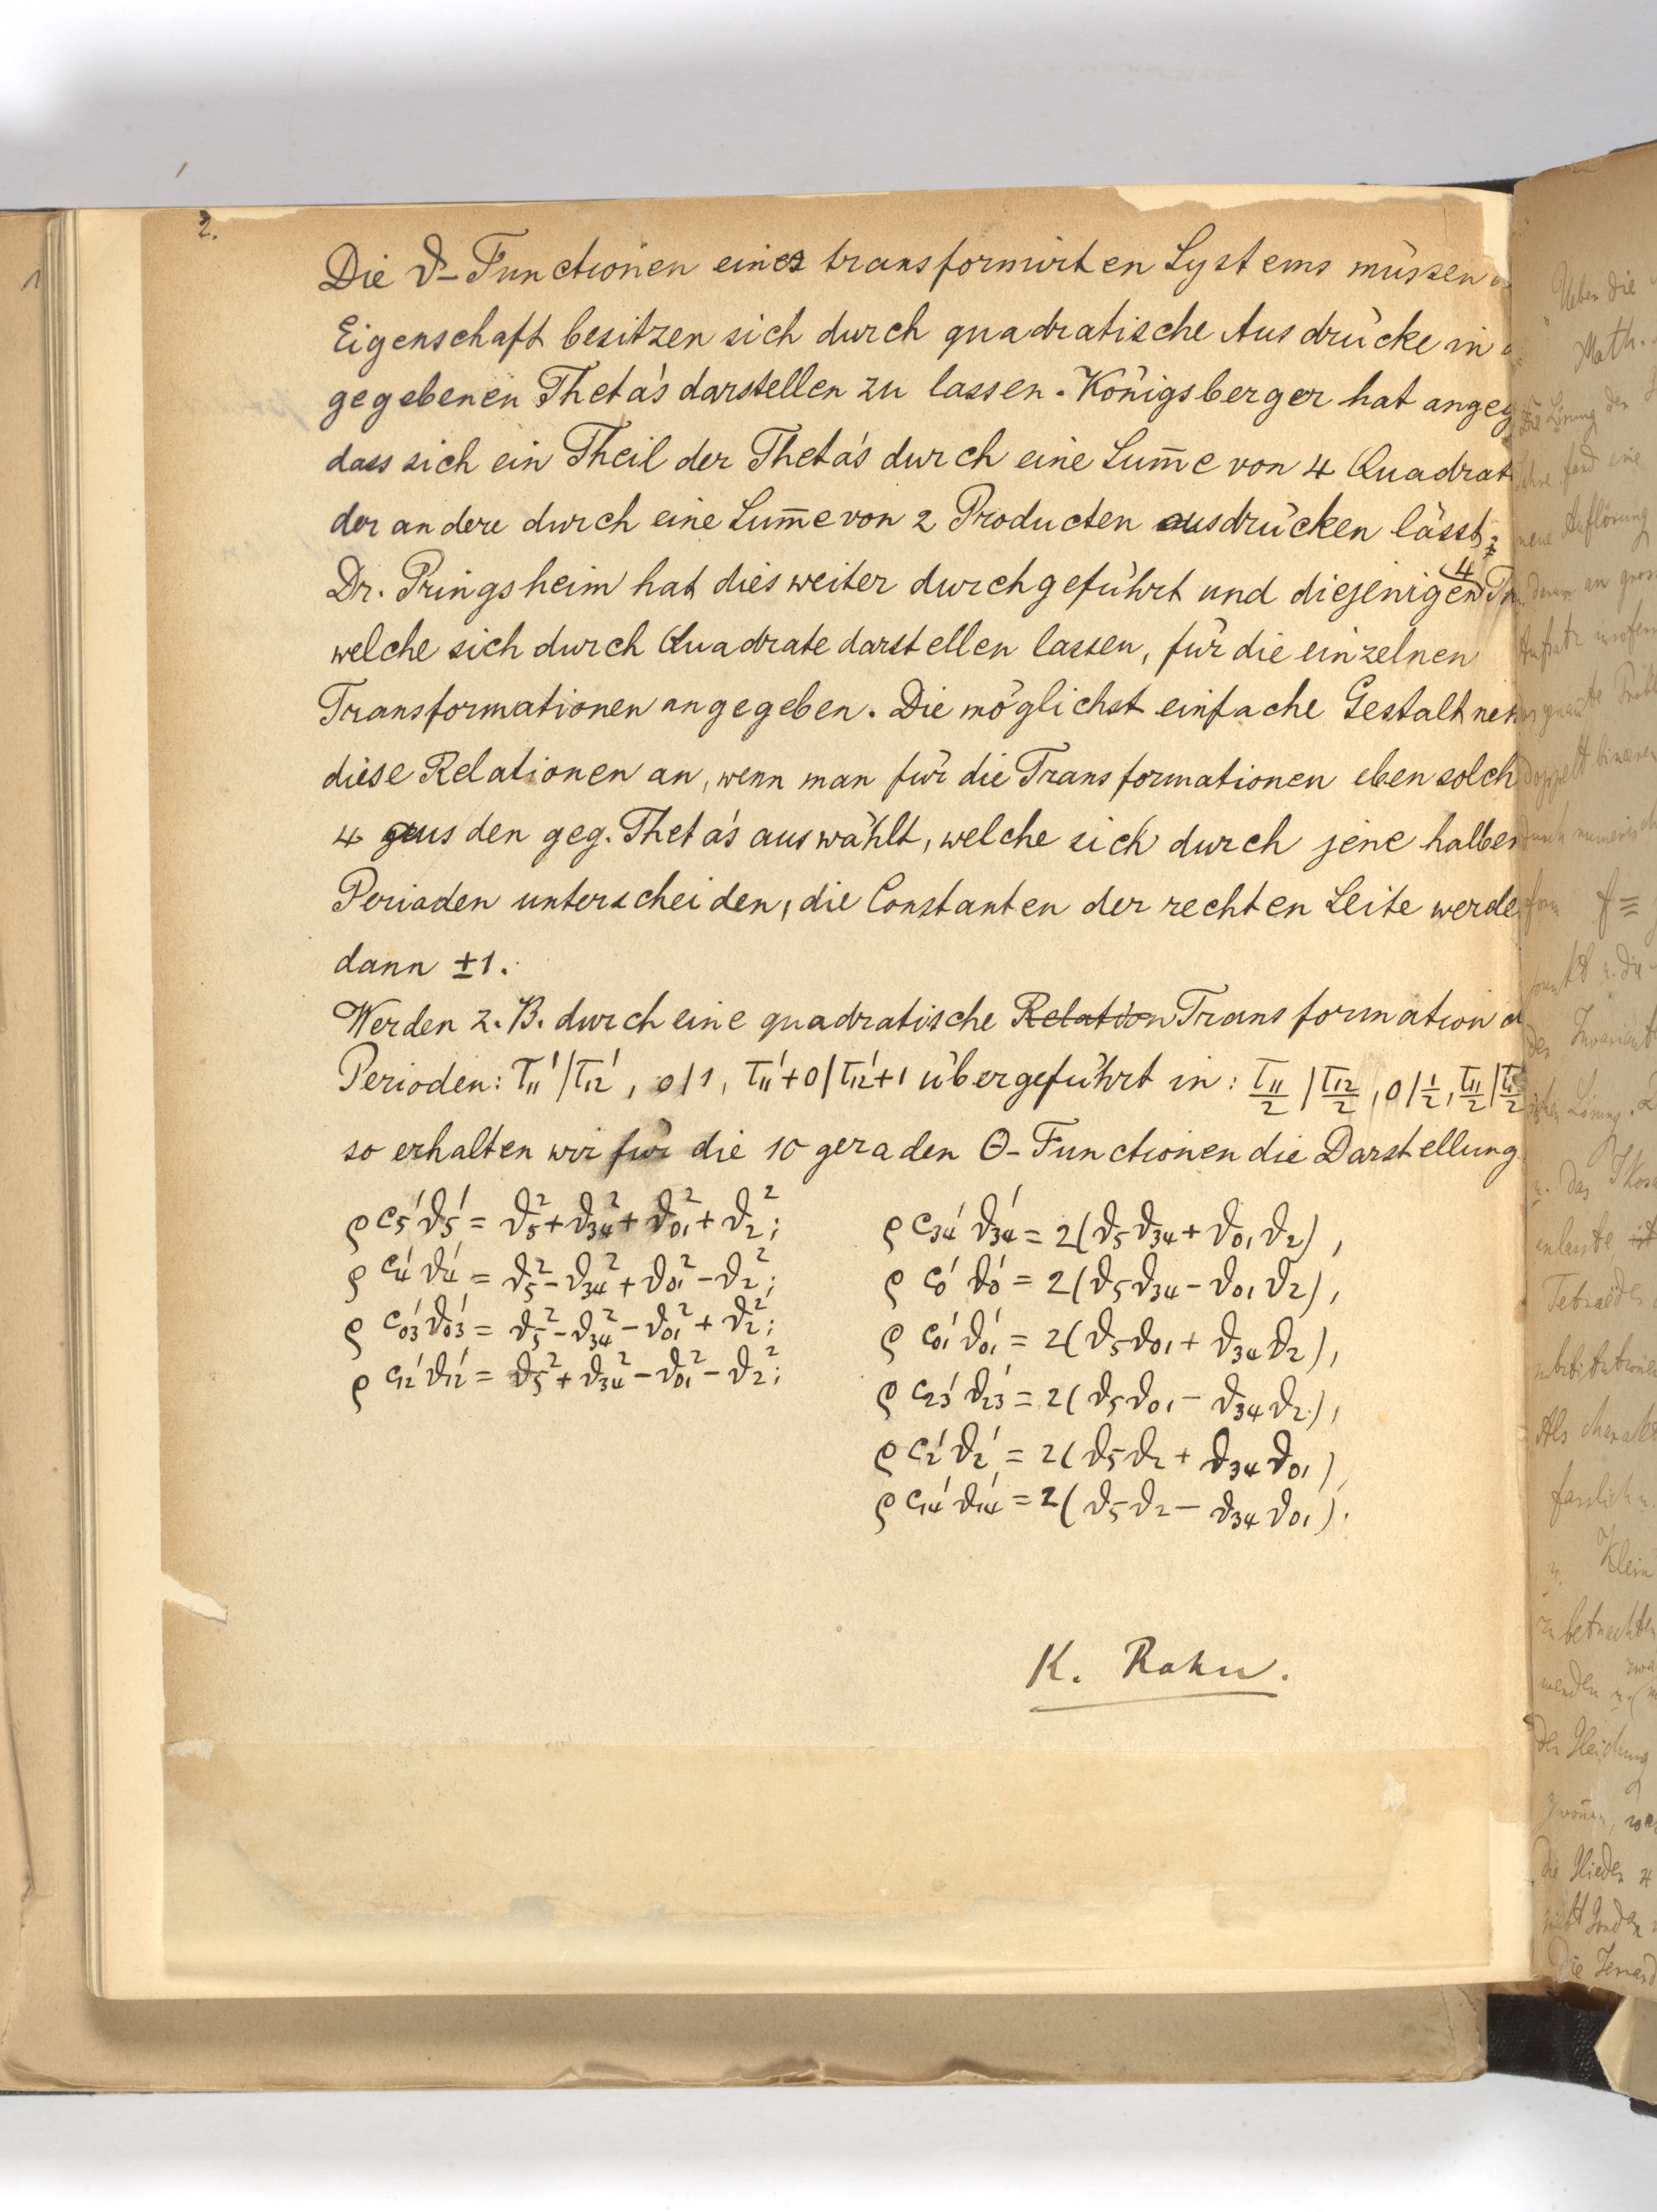 2.
Die ϑ-Functionen eines transformirten Systems müssen
Eigenschaft besitzen sich durch quadratische Ausdrücke in
gegebenen Theta's darstellen zu lassen. Königsberger hat angeg
dass sich ein Theil der Theta's durch eine Sum̅e von 4 Quadrat
der andere durch eine Sum̅e von 2 Producten ausdrücken lässt;
Dr. Pringsheim hat dies weiter durchgeführt und diejenigen 4
welche sich durch Quadrate darstellen lassen, für die einzelnen
Transformationen angegeben. Die möglichst einfache Gestalt neh
diese Relationen an, wenn man für die Transformationen eben solch
4 aus den geg. Theta's auswählt, welche sich durch jene halben
Perioden unterscheiden, die Constanten der rechten Seite werde
dann ±1.
Werden z.B. durch eine quadratische Relation Transformation d
Perioden: τ₁₁'/τ₁₂', 0/1, τ₁₁'+0/τ₁₂'+1 übergeführt in: τ₁₁/2 / τ₁₂/2, 0/½, τ₁₁/2 /
so erhalten wir für die 10 geraden Θ-Functionen die Darstellung
ρ c₅'ϑ₅' = ϑ₅² + ϑ₃₄² + ϑ₀₁² + ϑ₂²; ρ c₃₄'ϑ₃₄' = 2(ϑ₅ϑ₃₄ + ϑ₀₁ϑ₂),
ρ c₄'ϑ₄' = ϑ₅² - ϑ₃₄² + ϑ₀₁² - ϑ₂²; ρ c₀'ϑ₀' = 2(ϑ₅ϑ₃₄ - ϑ₀₁ϑ₂),
ρ c₀₃'ϑ₀₃' = ϑ₅² - ϑ₃₄² - ϑ₀₁² + ϑ₂²; ρ c₀₁'ϑ₀₁' = 2(ϑ₅ϑ₀₁ + ϑ₃₄ϑ₂),
ρ c₁₂'ϑ₁₂' = ϑ₅² + ϑ₃₄² - ϑ₀₁² - ϑ₂²; ρ c₂₃'ϑ₂₃' = 2(ϑ₅ϑ₀₁ - ϑ₃₄ϑ₂),
ρ c₂'ϑ₂' = 2(ϑ₅ϑ₂ + ϑ₃₄ϑ₀₁),
ρ c₁₄'ϑ₁₄' = 2(ϑ₅ϑ₂ - ϑ₃₄ϑ₀₁).
K. Rohn.
Ueber die
Math.
neue Auflösung
f =
Klein
zu betrachten